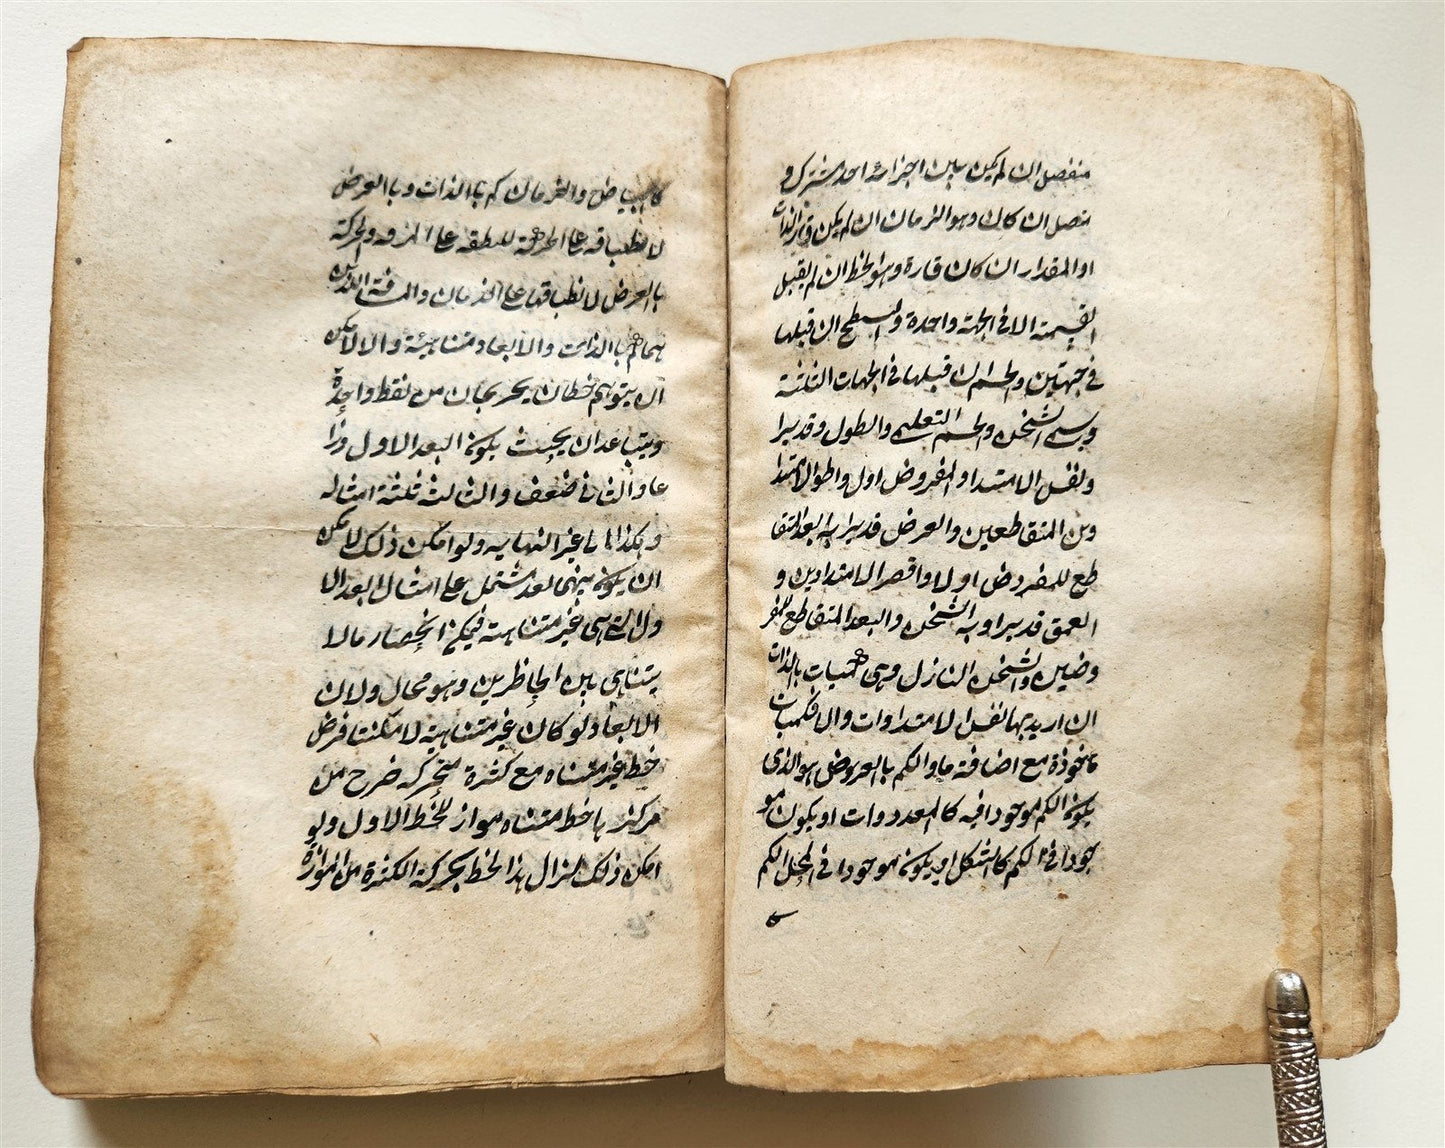 منفصل ان لم يكن بين اجزائه احد مشترك و
متصل ان كان وهو الزمان ان لم يكن قار الذات
او المقدار ان كان قارة وهو الخط ان لم يقبل
القسمة الا فى الجهة واحدة والسطح ان قبلها
فى جهتين والجسم ان قبلها فى الجهات الثلثة
ويسمى الثخن والجسم التعليمى والطول وقد يراد
ونفس الامتداد المفروض اول واطول الامتدا
دين المتقاطعين والعرض قد يراد به البعد المتقا
طع للمفروض اولا واقصر الامتدادين و
العمق قد يراد به الثخن والبعد المتقاطع للمفر
وضين والثخن النازل وهى كميات بالذات
ان اريد بها نفس الامتدادات والا فكميات
مأخوذة مع اضافة ما والكم بالعروض هو الذى
يكون الكم موجودا فيه كالمعدودات او يكون مو
جودا فى الكم كالشكل او يكون موجودا فى المحل الكم
ك
كالبياض والزمان كم بالذات وبالعرض
لانطباقه على الحركة المنطبقة على المسافة والحركة
بالعرض لانطباقها على الزمان والمسافة اللذين
هما كم بالذات والابعاد متناهية والا لامكن
ان يتوهم خطان يخرجان من نقطة واحدة
ويتباعدان بحيث يكون البعد الاول ذرا
عا والثانى ضعف والثالث ثلثة امثاله
وهكذا الى غير النهاية ولو امكن ذلك لامكن
ان يكون بينهما بعد مشتمل على امثال البعد الا
ول التى هى غير متناهية فيمكن انحصار ما لا
يتناهى بين الحاظرين وهو محال ولان
الابعاد لو كان غير متناهية لامكننا فرض
خط غير متناه مع كثرة متحركة خرج من
مركزها خط متناه مواز للخط الاول ولو
امكن ذلك لزال هذا الخط بحركة الكثرة من الموازة